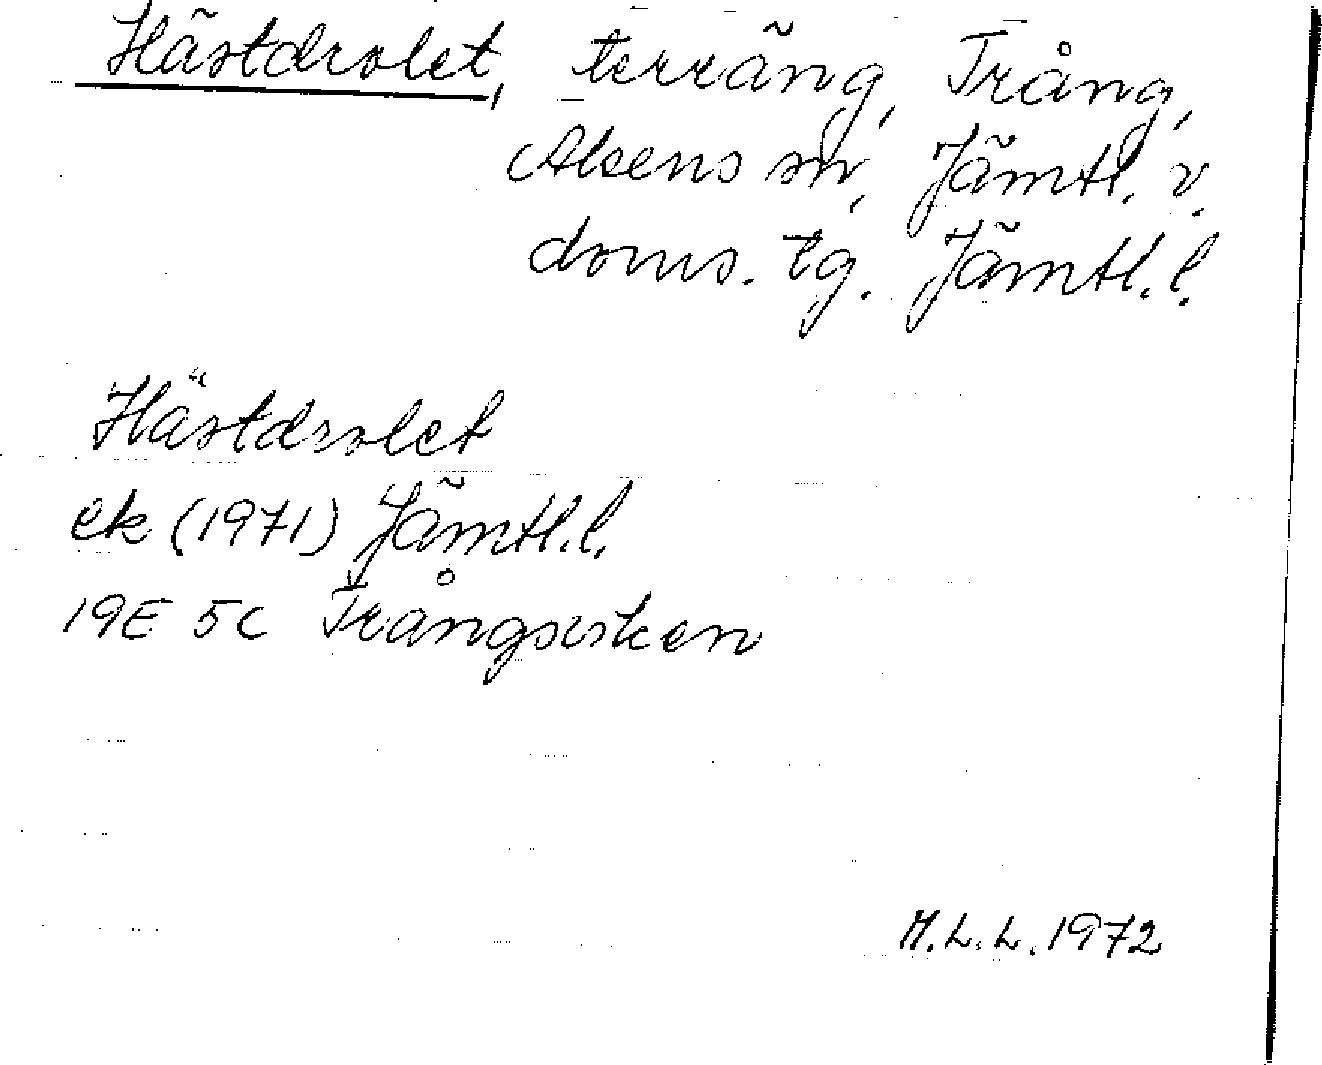 Hästdrolet, terräng, Trång,
Alsens sn, Jämtl. v.
doms. tg. Jämtl. l.
Hästdrolet
ek (1971) Jämtl. l.
19E 5c Trångsviken
M.L.L. 1972